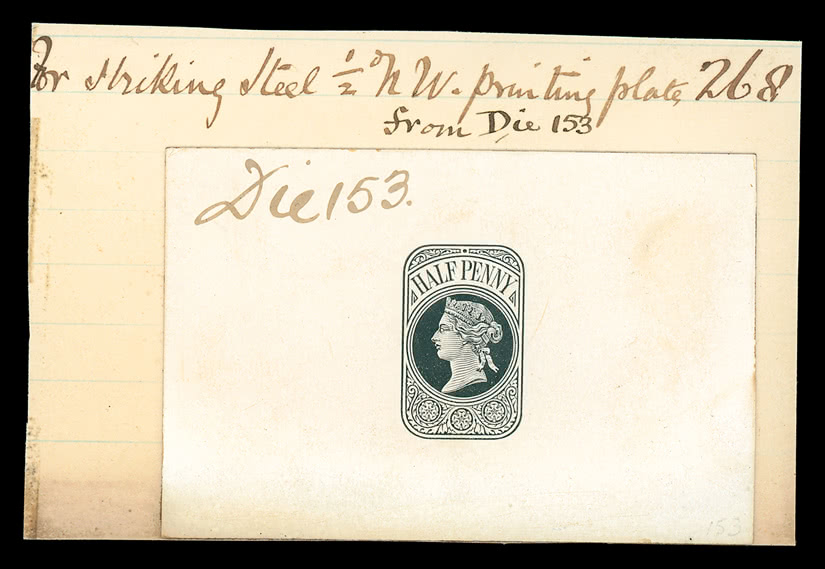 For striking Steel ½ᵈ N W. printing plate 268
from Die 153
Die 153.
HALF PENNY
153